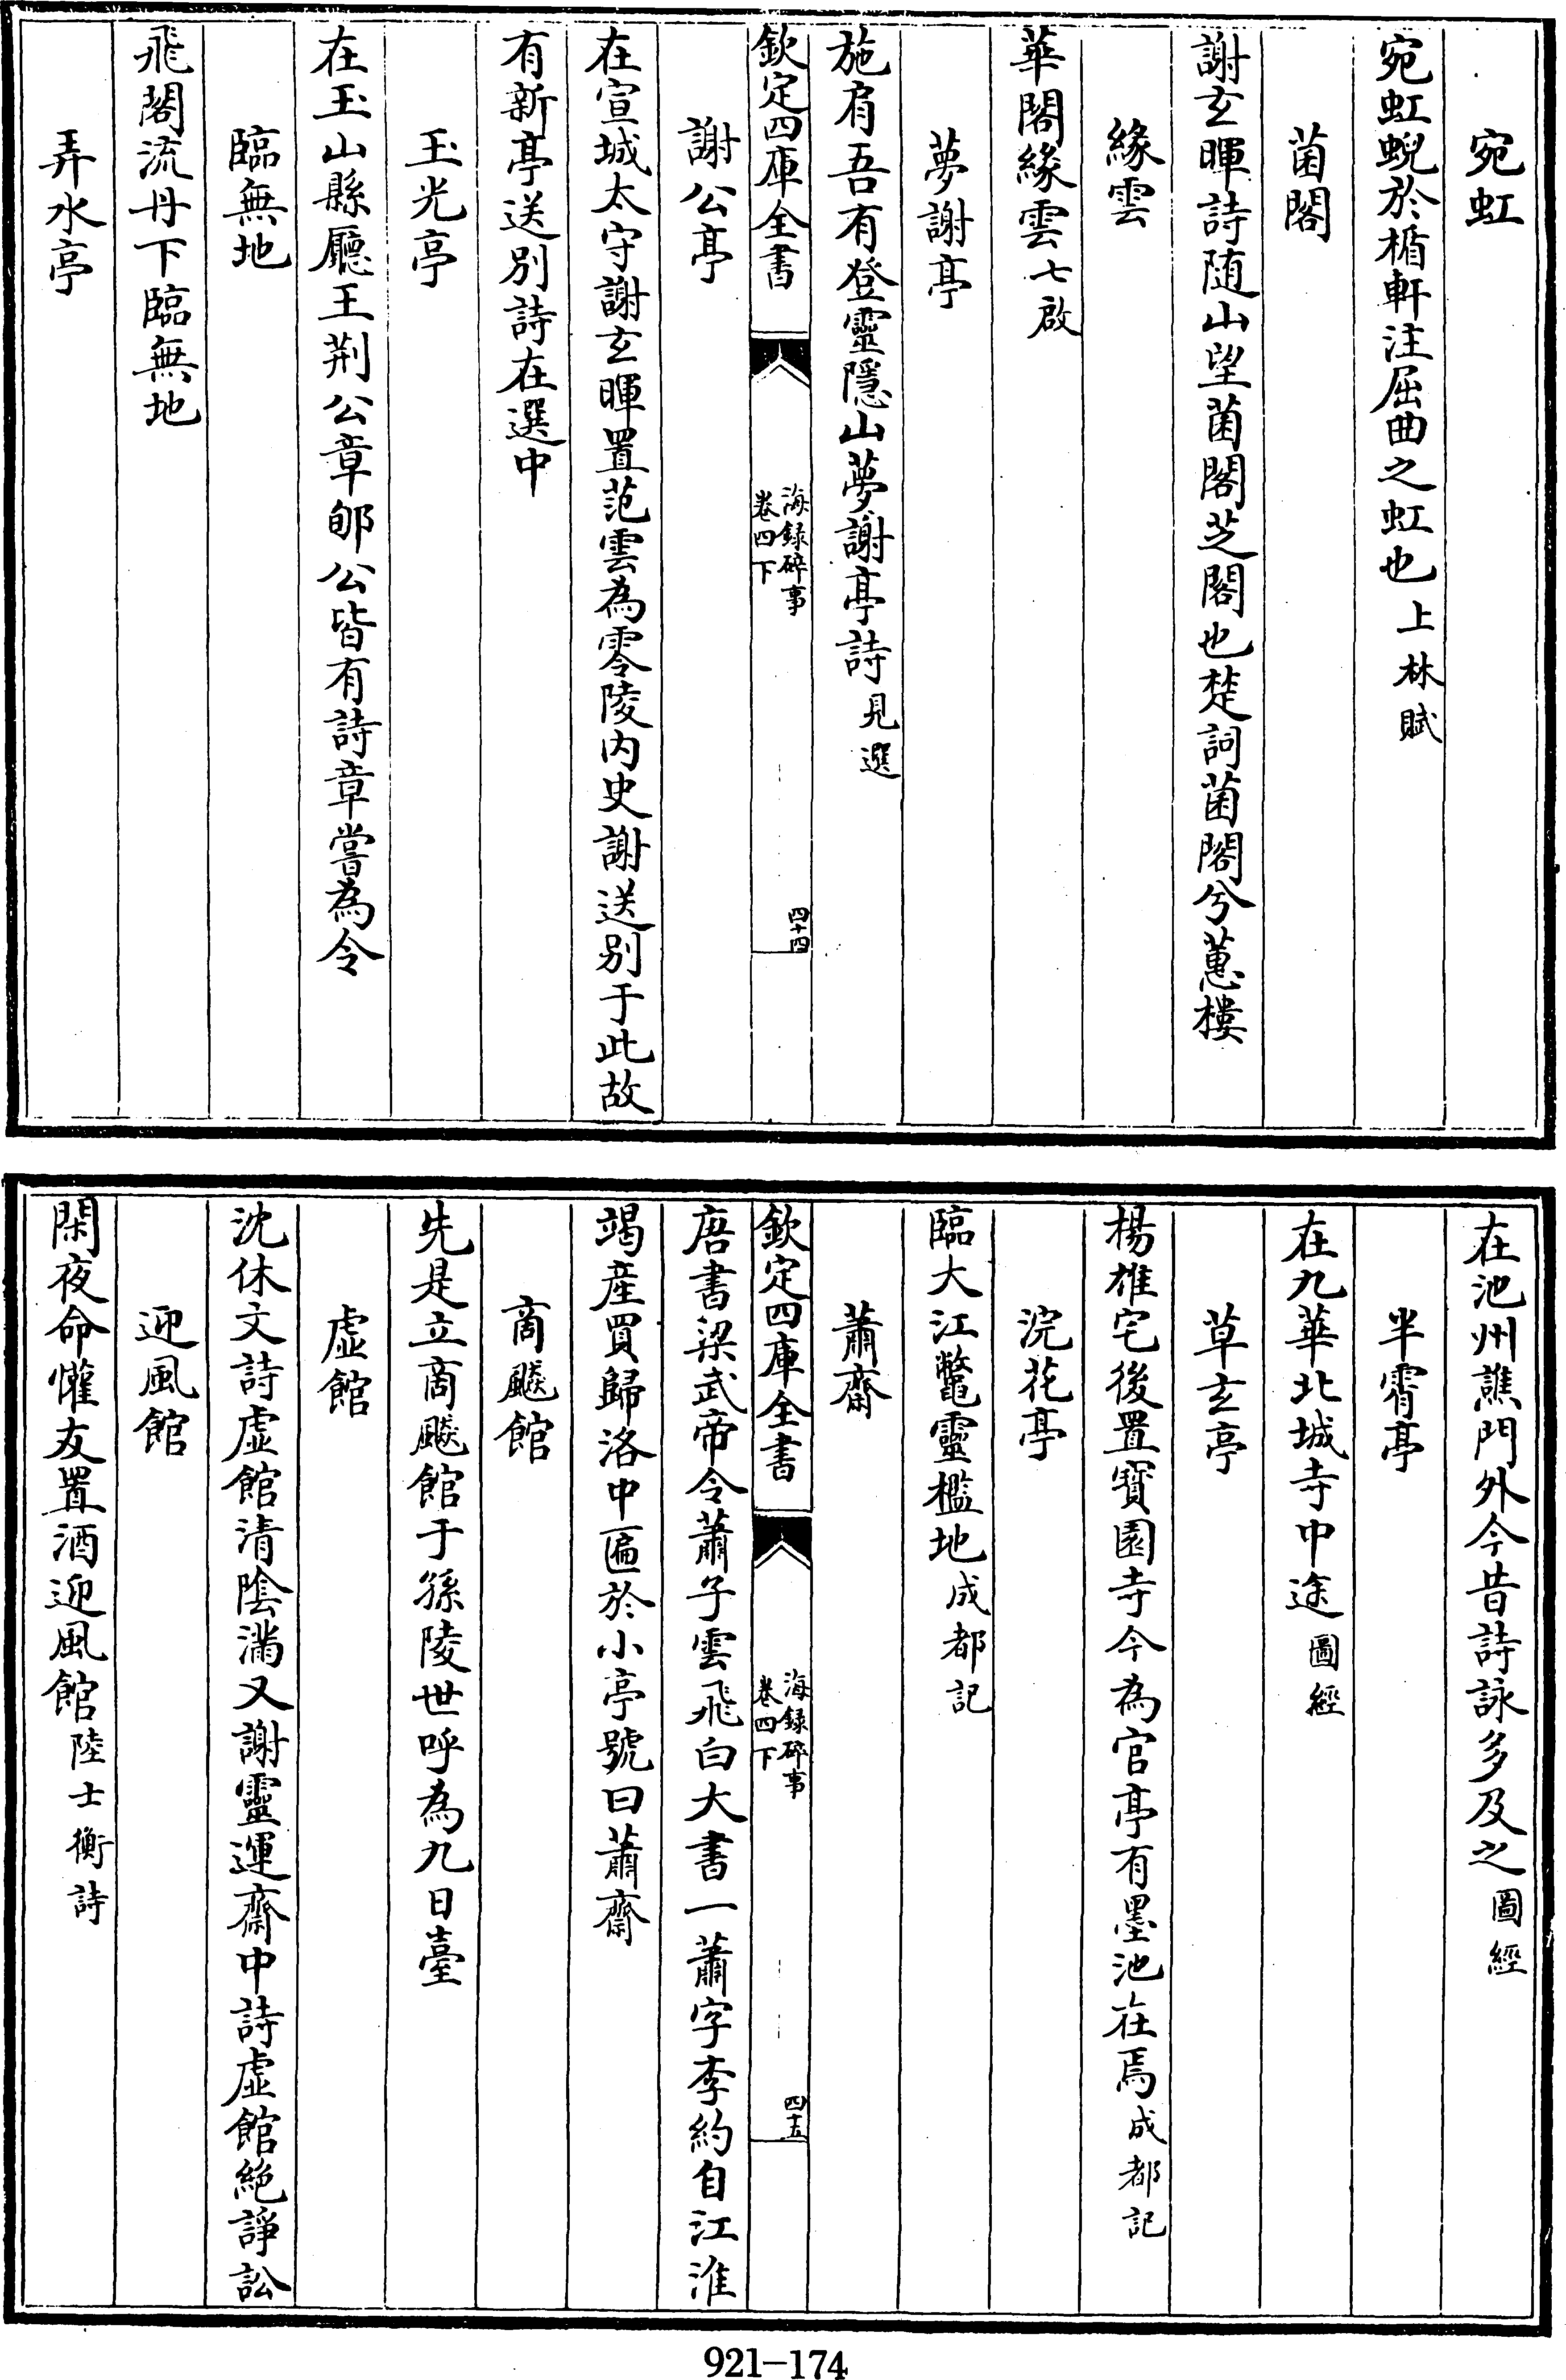 宛虹
宛虹蜺於楯軒注屈曲之虹也上林賦
菌閣
謝玄暉詩随山望菌閣芝閣也楚詞菌閣兮蕙樓
緣雲
華閣緣雲七啟
夢謝亭
施肩吾有登靈隱山夢謝亭詩見選
欽定四庫全書
海録碎事
卷四下
四十四
謝公亭
在宣城太守謝玄暉置范雲為零陵内史謝送别于此故
有新亭送别詩在選中
玉光亭
在玉山縣廳王荆公章郇公皆有詩章嘗為令
臨無地
飛閣流丹下臨無地
弄水亭
在池州譙門外今昔詩詠多及之圖經
半霄亭
在九華北城寺中途圖經
草玄亭
楊雄宅後置寶園寺今為官亭有墨池在焉成都記
浣花亭
臨大江鼈靈檻地成都記
蕭齋
欽定四庫全書
海録碎事
卷四下
四十五
唐書梁武帝令蕭子雲飛白大書一蕭字李約自江淮
竭産買歸洛中匾於小亭號曰蕭齋
商飇館
先是立商飇館于孫陵世呼為九日臺
虚館
沈休文詩虚館清陰滿又謝靈運齋中詩虚館絶諍訟
迎風館
閑夜命懽友置酒迎風館陸士衡詩
921-174